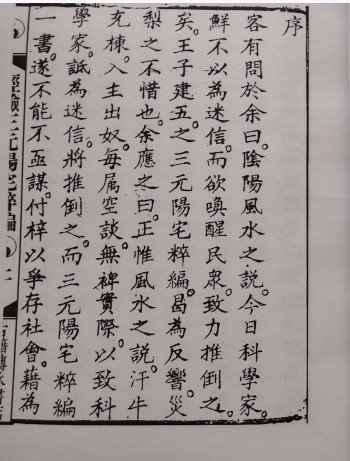 序
客有問於余曰。陰陽風水之說。今日科學家。
鮮不以為迷信。而欲喚醒民眾。致力推倒之。
矣。王子建五之三元陽宅粹編。曷為反響災
梨之不惜也。余應之曰。正惟風水之說。汗牛
充棟。入主出奴。每屬空談。無裨實際。以致科
學家。詆為迷信。將推倒之。而三元陽宅粹編
一書。遂不能不亟謀。付梓以爭存社會。藉為
三元陽宅粹編